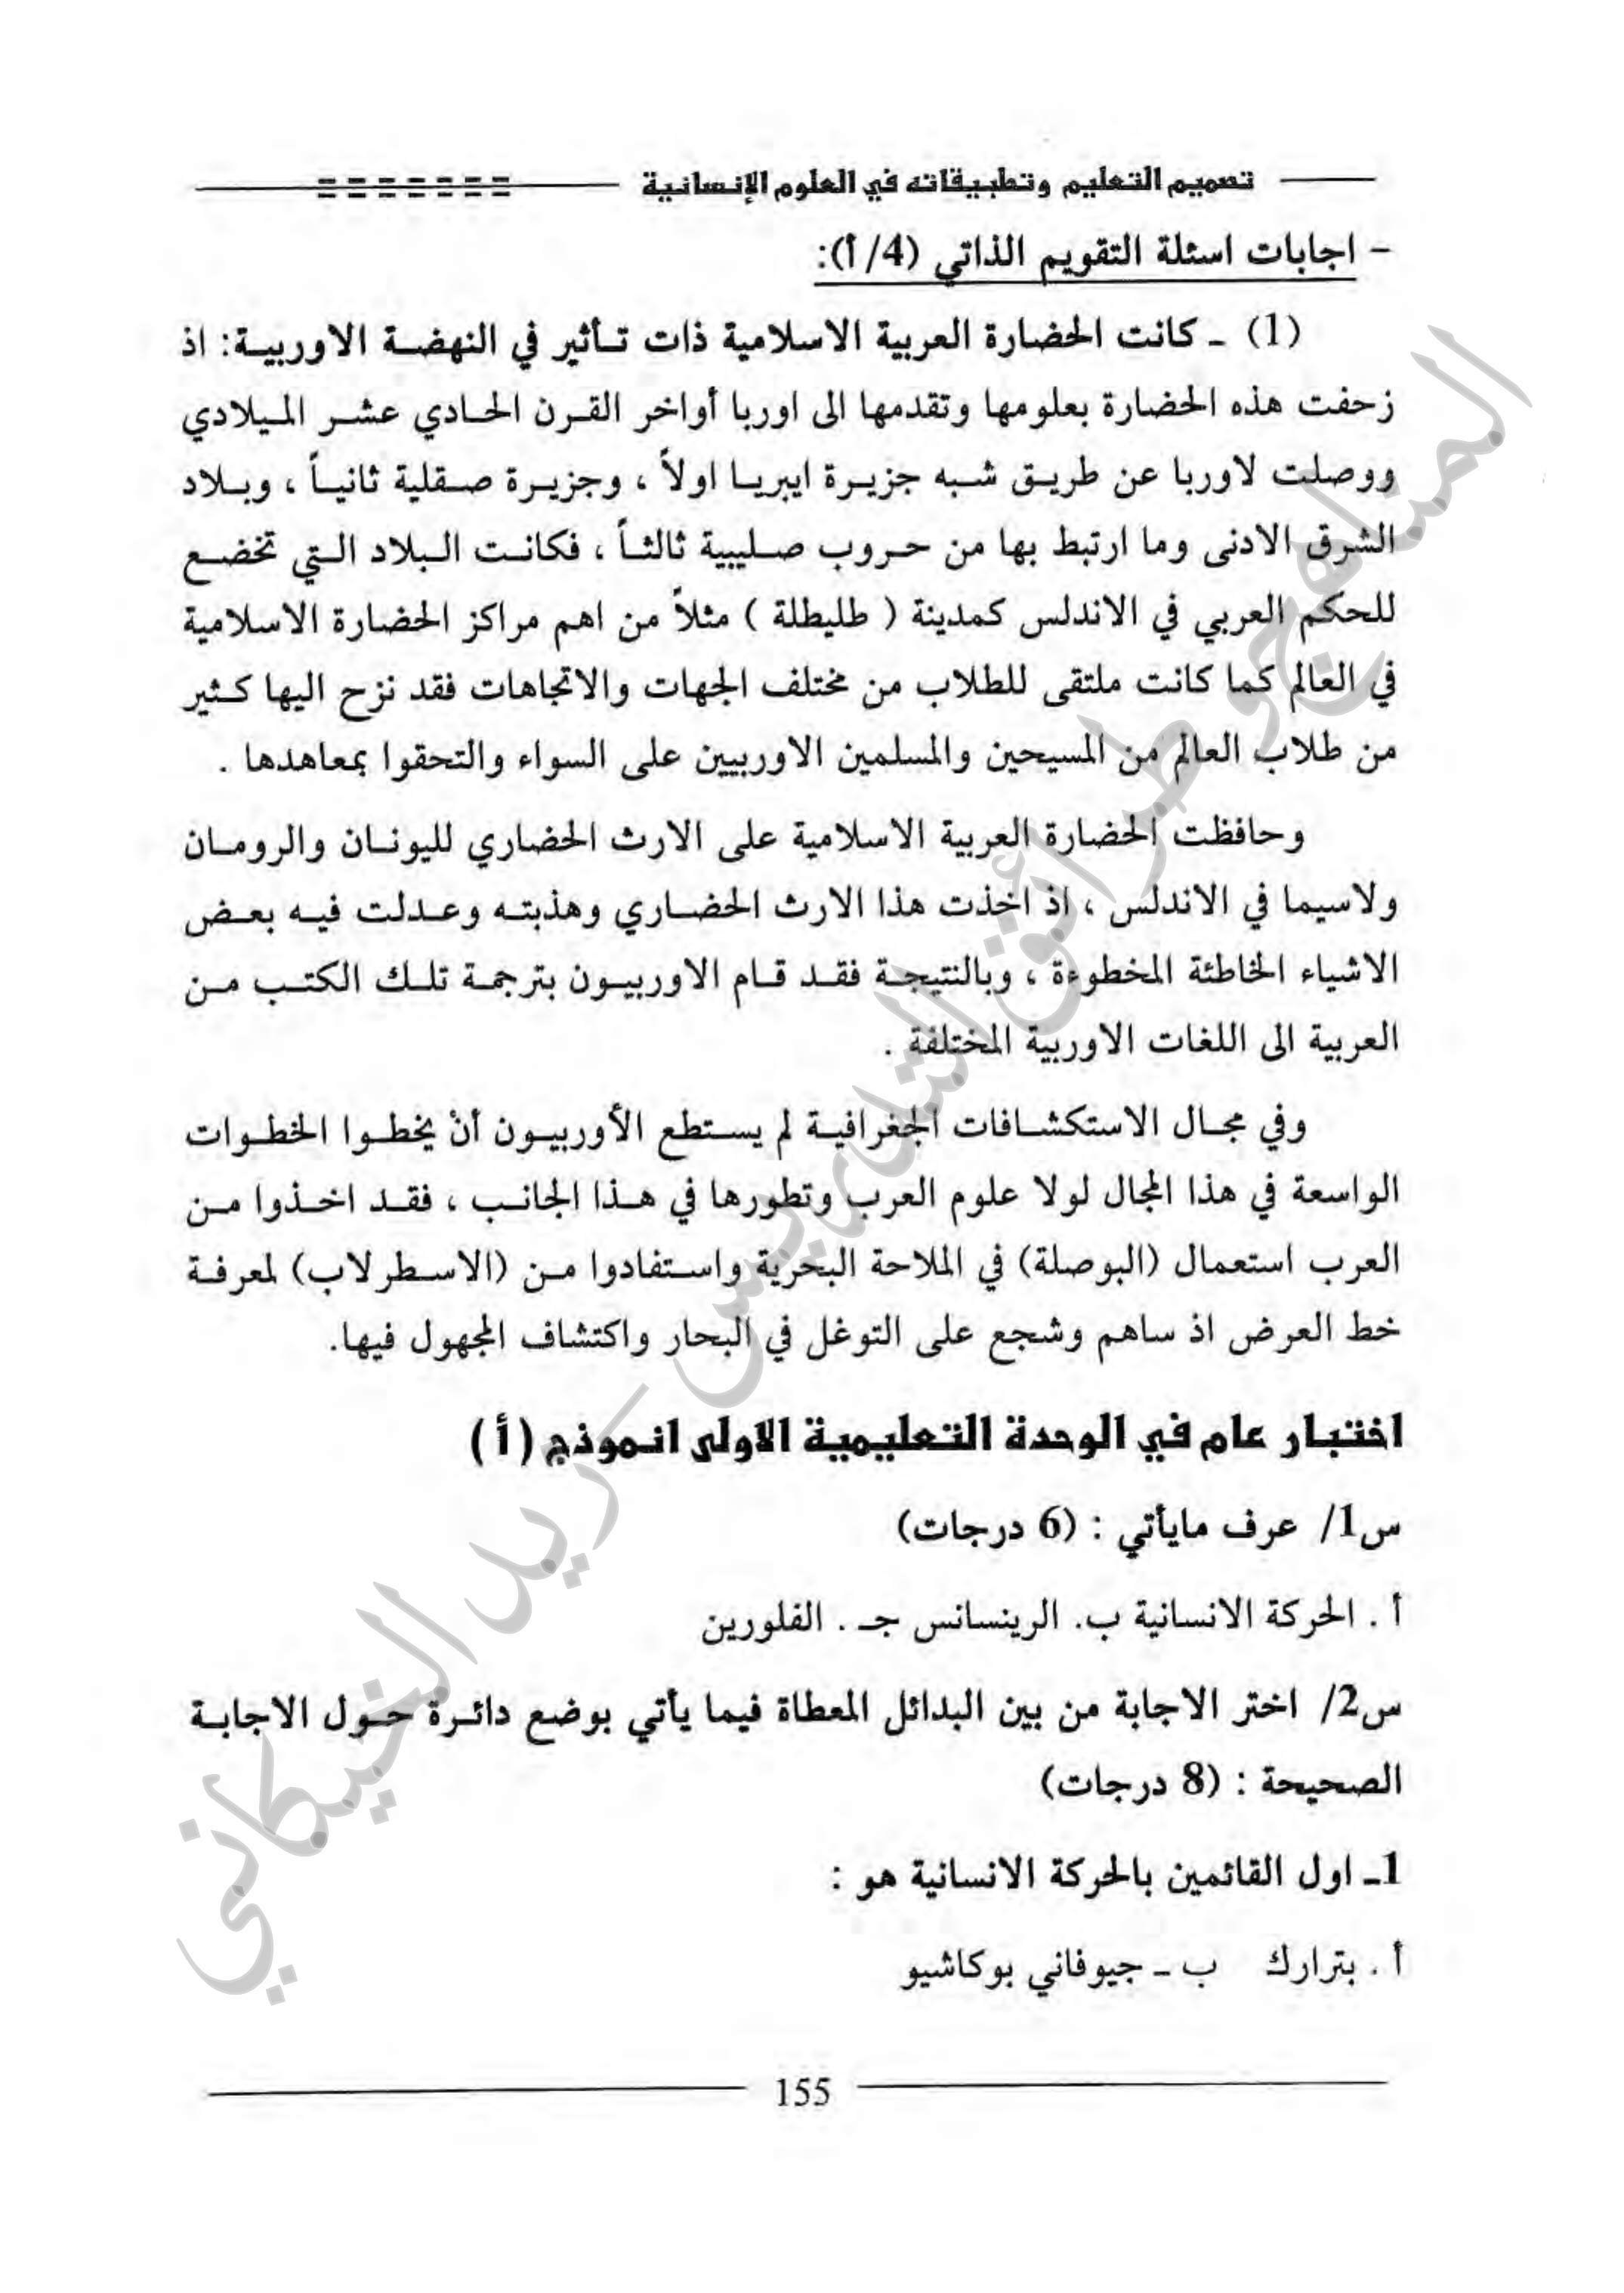 تصميم التعليم وتطبيقاته في العلوم الإنسانية
- اجابات اسئلة التقويم الذاتي (4/أ):
(1) ـ كانت الحضارة العربية الاسلامية ذات تأثير في النهضة الاوربية: اذ
زحفت هذه الحضارة بعلومها وتقدمها الى اوربا أواخر القرن الحادي عشر الميلادي
ووصلت لاوربا عن طريق شبه جزيرة ايبريا اولاً ، وجزيرة صقلية ثانياً ، وبلاد
الشرق الادنى وما ارتبط بها من حروب صليبية ثالثاً ، فكانت البلاد التي تخضع
للحكم العربي في الاندلس كمدينة ( طليطلة ) مثلاً من اهم مراكز الحضارة الاسلامية
في العالم كما كانت ملتقى للطلاب من مختلف الجهات والاتجاهات فقد نزح اليها كثير
من طلاب العالم من المسيحين والمسلمين الاوربيين على السواء والتحقوا بمعاهدها .
وحافظت الحضارة العربية الاسلامية على الارث الحضاري لليونان والرومان
ولاسيما في الاندلس ، اذ اخذت هذا الارث الحضاري وهذبته وعدلت فيه بعض
الاشياء الخاطئة المخطوءة ، وبالنتيجة فقد قام الاوربيون بترجمة تلك الكتب من
العربية الى اللغات الاوربية المختلفة .
وفي مجال الاستكشافات الجغرافية لم يستطع الأوربيون أنْ يخطوا الخطوات
الواسعة في هذا المجال لولا علوم العرب وتطورها في هذا الجانب ، فقد اخذوا من
العرب استعمال (البوصلة) في الملاحة البحرية واستفادوا من (الاسطرلاب) لمعرفة
خط العرض اذ ساهم وشجع على التوغل في البحار واكتشاف المجهول فيها.
اختبار عام في الوحدة التعليمية الاولى انموذج (أ)
س1/ عرف مايأتي : (6 درجات)
أ . الحركة الانسانية ب. الرينسانس جـ . الفلورين
س2/ اختر الاجابة من بين البدائل المعطاة فيما يأتي بوضع دائرة حول الاجابة
الصحيحة : (8 درجات)
1ـ اول القائمين بالحركة الانسانية هو :
أ . بترارك ب ـ جيوفاني بوكاشيو
155
المناهج وطرائق التدريس - ريد الخيكاني